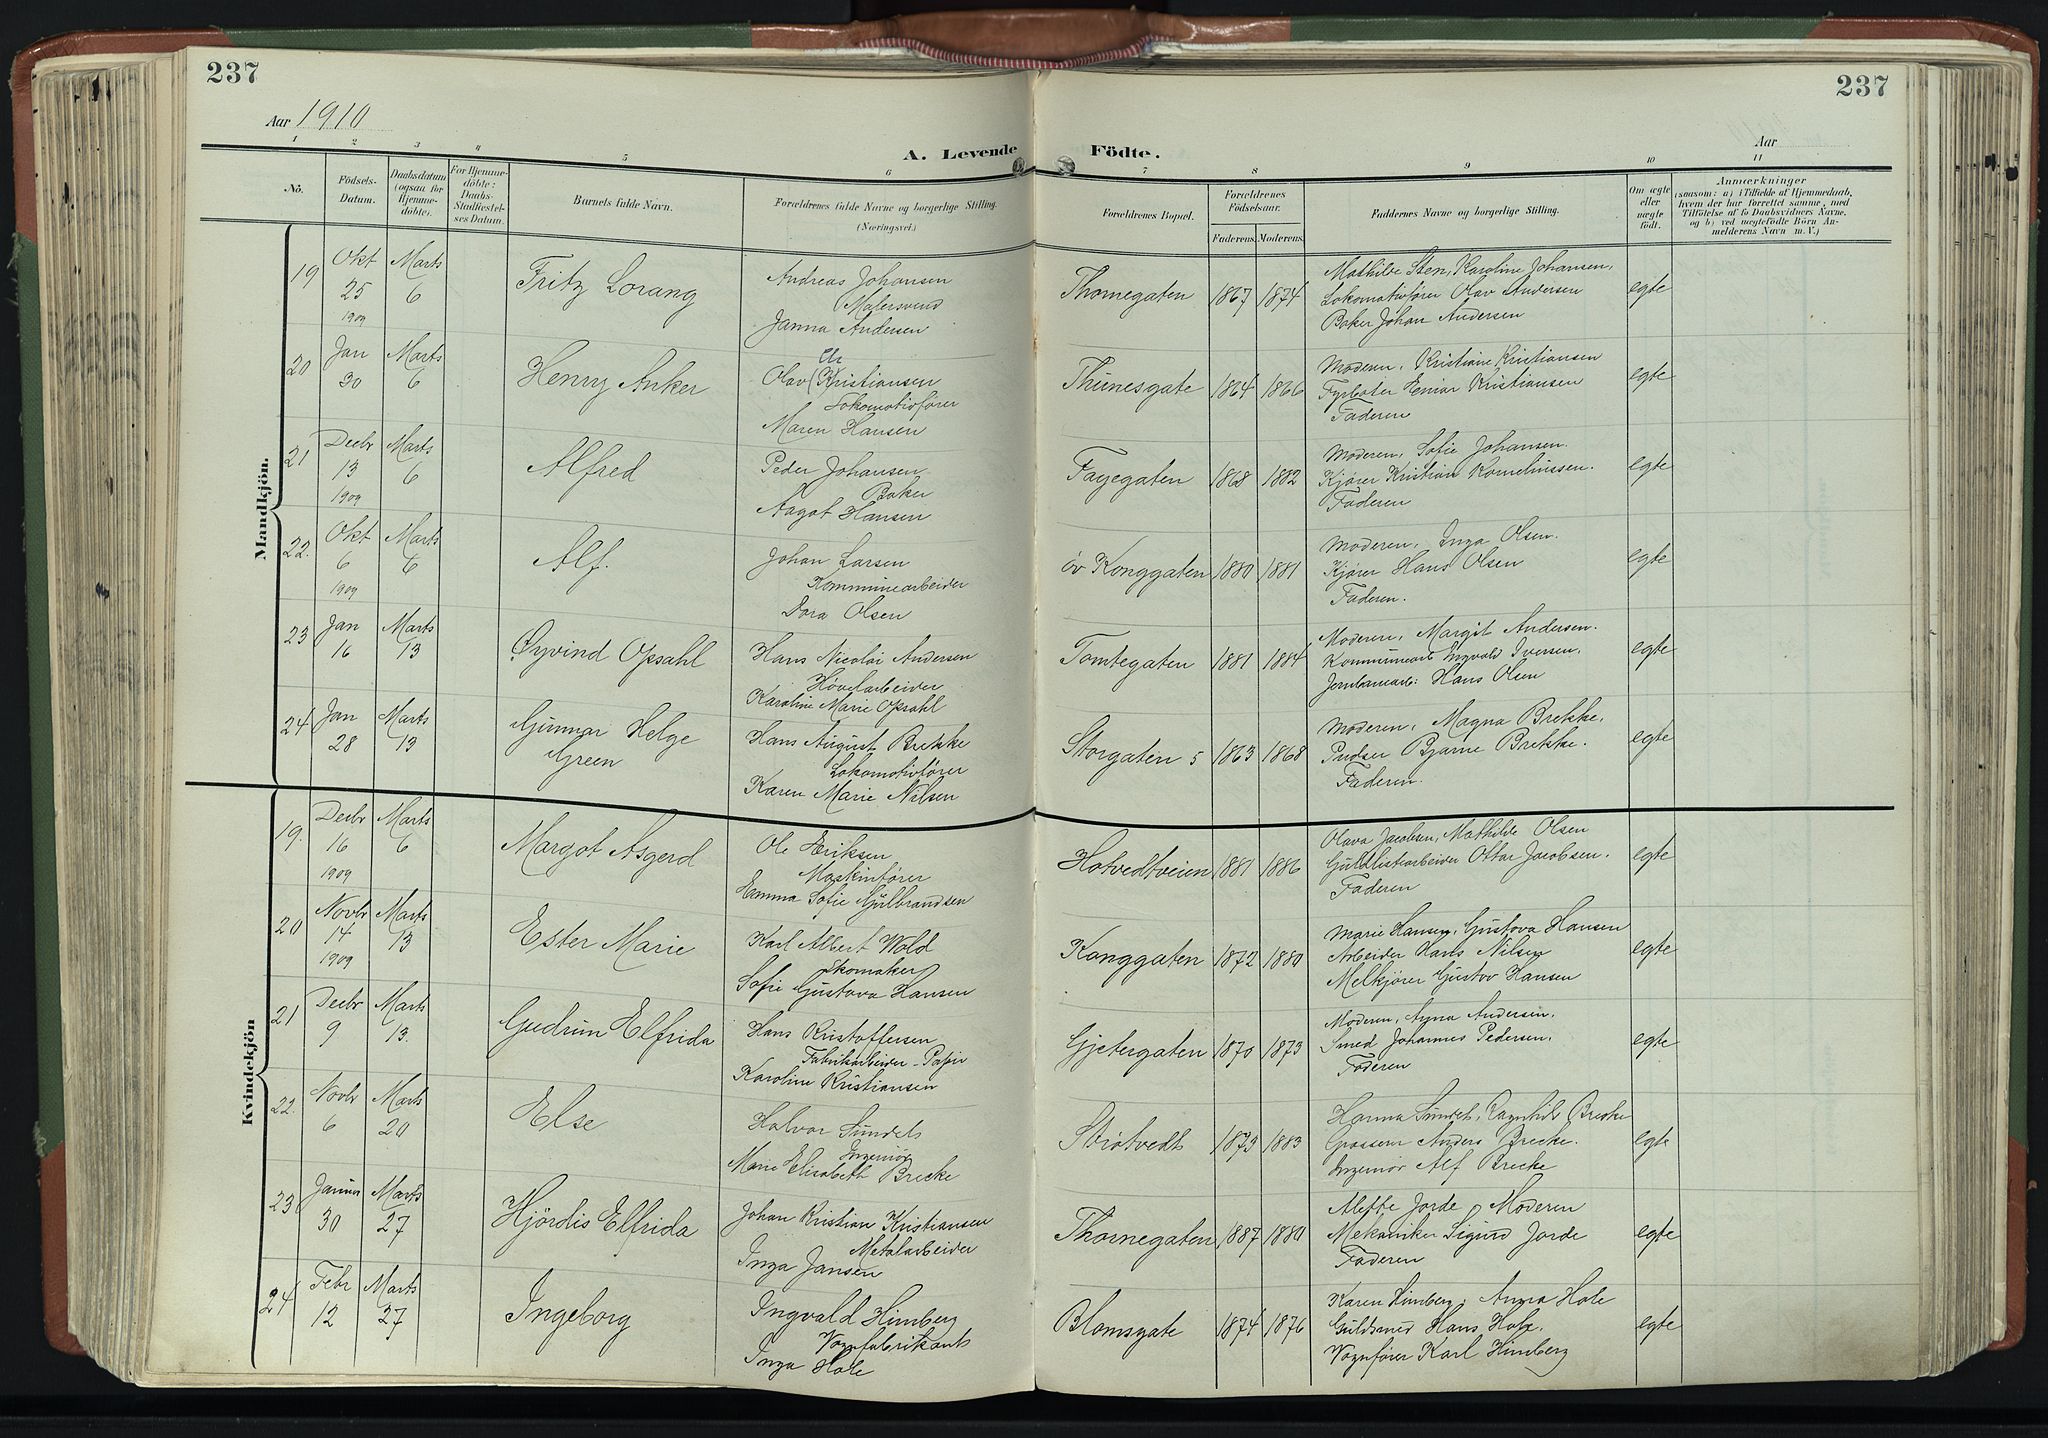 237
237
Aar 1910
Aar
A. Levende Födte.
1 2 3 4 5 6 7 8 9 10 11
No.
Födsels-
Datum.
Daabsdatum
(ogsaa for
Hjemme-
döbte).
For Hjemme-
döbte:
Daabs-
Stadfæstel-
ses Datum.
Barnets fulde Navn.
Forældrenes fulde Navne og borgerlige Stilling.
(Næringsvei.)
Forældrenes Bopæl.
Forældrenes
Födselsaar.
Faderens. Moderens.
Faddernes Navne og borgerlige Stilling.
Om ægte
eller
uægte
födt.
Anmærkninger
(saasom: a) i Tilfælde af Hjemmedaab,
hvem der har forrettet samme, med
Tilföielse af to Daabsvidners Navne,
og b) ved uægtefödte Börn An-
melderens Navn m. V.)
Mandkjön.
19 Okt 25 1909 Marts 6 Fritz Lorang
Andreas Johansen
Malersvend
Janna Andersen
Thornegaten 1867 1874
Mathilde Sten, Karoline Johansen,
Lokomotivfører Olav Andersen
Baker Johan Andersen
egte
20 Jan 30 Marts 6 Henry Anker
Chr
Olav (Kristiansen
Lokomotivfører
Maren Hansen
Thunesgate 1864 1866
Moderen, Kristiane Kristiansen
Fyrbøter Einar Kristiansen
Faderen
egte
21 Decbr 13 1909 Marts 6 Alfred
Peder Johansen
Baker
Aagot Hansen
Fagegaten 1868 1882
Moderen, Sofie Johansen.
Kjører Kristian Kornelinssen.
Faderen
egte
22. Okt 6 1909 Marts 6 Alf.
Johan Larsen
Kommunearbeider
Dora Olsen
öv Konggaten 1880 1881
Moderen, Inga Olsen.
Kjører Hans Olsen
Faderen.
egte
23 Jan 16 Marts 13 Øyvind Opsahl
Hans Nicolai Andersen
Høvelarbeider
Karoline Marie Opsahl
Tomtegaten 1881 1884
Moderen, Margit Andersen.
Kommunearb Ingvald Iversen,
Jernbanearb: Hans Olsen
egte
24 Jan 28 Marts 13 Gunnar Helge
Green
Hans August Brekke
Lokomotivfører
Karen Marie Nilsen
Storgaten 5 1863 1868
Moderen, Magna Brekke,
Pudser Bjarne Brekke.
Faderen.
egte
Kvindekjön
19. Decbr 16 1909 Marts 6 Margot Asgerd
Ole Eriksen
Maskinfører
Emma Sofie Gulbrandsen
Hotvedtveien 1881 1886
Olava Jacobsen, Mathilde Olsen
Guldlistarbeider Ottar Jacobsen.
Faderen
egte
20 Novbr 14 1909 Marts 13 Ester Marie
Karl Albert Wold
Skomaker
Sofie Gustava Hansen
Konggaten 1872 1880
Marie Hansen, Gustava Hansen
Arbeider Hans Nilsen
Melkjører Gustov Hansen
egte
21 Decbr 9 Marts 13. Gudrun Elfrida
Hans Kristoffersen
Fabrikarbeider - Papir
Karoline Kristiansen
Gjetergaten 1870 1873
Moderen, Anna Andersen,
Smed Johannes Pedersen.
Faderen
egte
22. Novbr 6 Marts 20 Else
Halvor Sundet
Ingeniør
Marie Elisabeth Brecke
Strøtvedt 1873 1883
Hanna Sundet, Ragnhild Brecke
Grosserer Anders Brecke.
Ingeniør Alf Brecke
egte
23 Januar 30 Marts 27 Hjördis Elfrida
Johan Kristian Kristiansen
Metalarbeider
Inga Jansen
Thornegaten 1887 1880
Alette Jorde, Moderen
Mekaniker Sigurd Jorde
Faderen
egte
24 Febr 12 Marts 27 Ingeborg
Ingvald Himberg
Vognfabrikant
Inga Hole
Blomsgate 1874 1876
Karen Himberg, Anna Hole
Guldsmed Hans Hole.
Vognfører Karl Himberg
egte